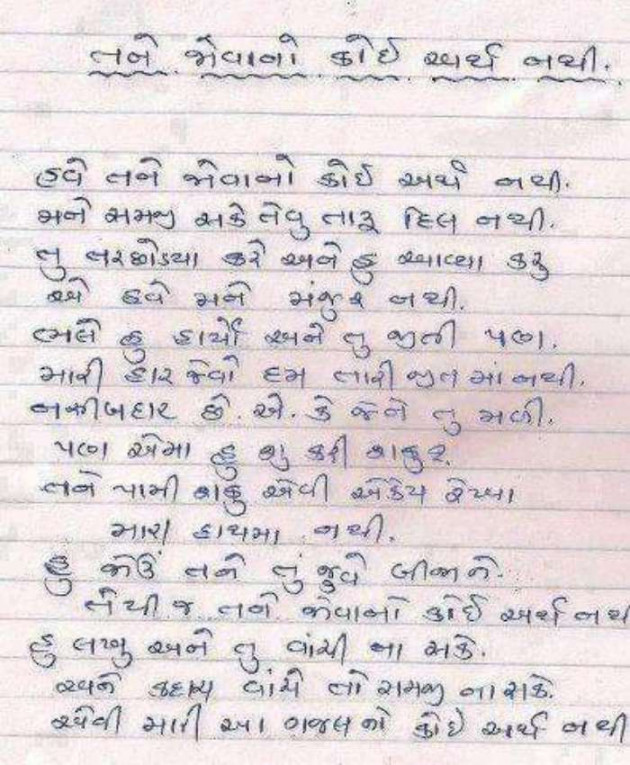 તને જોવાનો કોઈ અર્થ નથી.
હવે તને જોવાનો કોઈ અર્થ નથી.
મને સમજી સકે તેવુ તારૂ દિલ નથી.
તુ તરછોડયા કરે અને હુ આવ્યા કરુ
એ હવે મને મંજુર નથી.
ભલે હુ હાર્યો અને તુ જીતી પણ.
મારી હાર જેવો દમ તારી જીત માં નથી.
નસીબદાર છે. એ. કે જેને તુ મળી.
પણ એમા હુ શુ કરી શકુ
તને પામી શકુ એવી એકેય રેખા
મારા હાથમા નથી.
હુ જોઉં તને તું જુવે બીજાને.
તેથી જ તને જોવાનો કોઈ અર્થ નથ
હુ લખુ અને તુ વાંચી ના સકે.
અને કદાચ વાંચે તો સમજી ના સકે.
એવી મારી આ ગજલ નો કોઈ અર્થ નથી